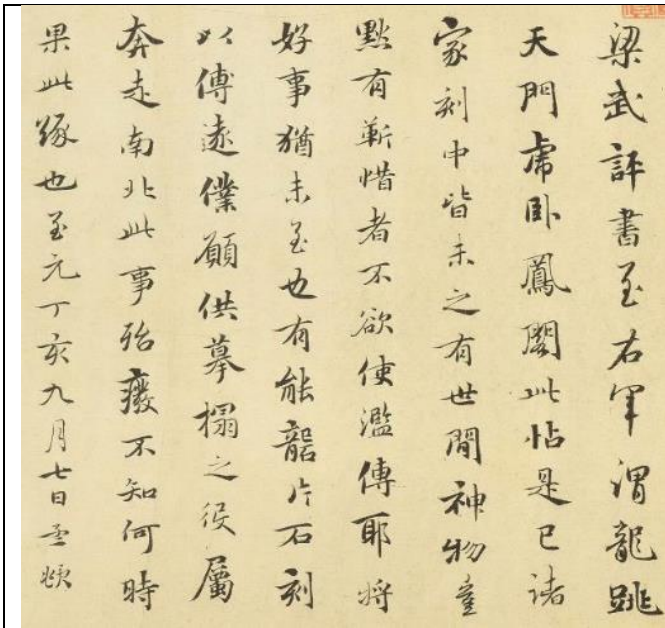 梁武評書至右軍謂龍跳
天門虎臥鳳閣此帖是已諸
家刻中皆未之有世間神物豈
默有靳惜者不欲使濫傳耶將
好事猶未至也有能礱片石刻
以傳遠僕願供摹搨之役屬
奔走南北此事殆廢不知何時
果此緣也至元丁亥九月七日孟頫